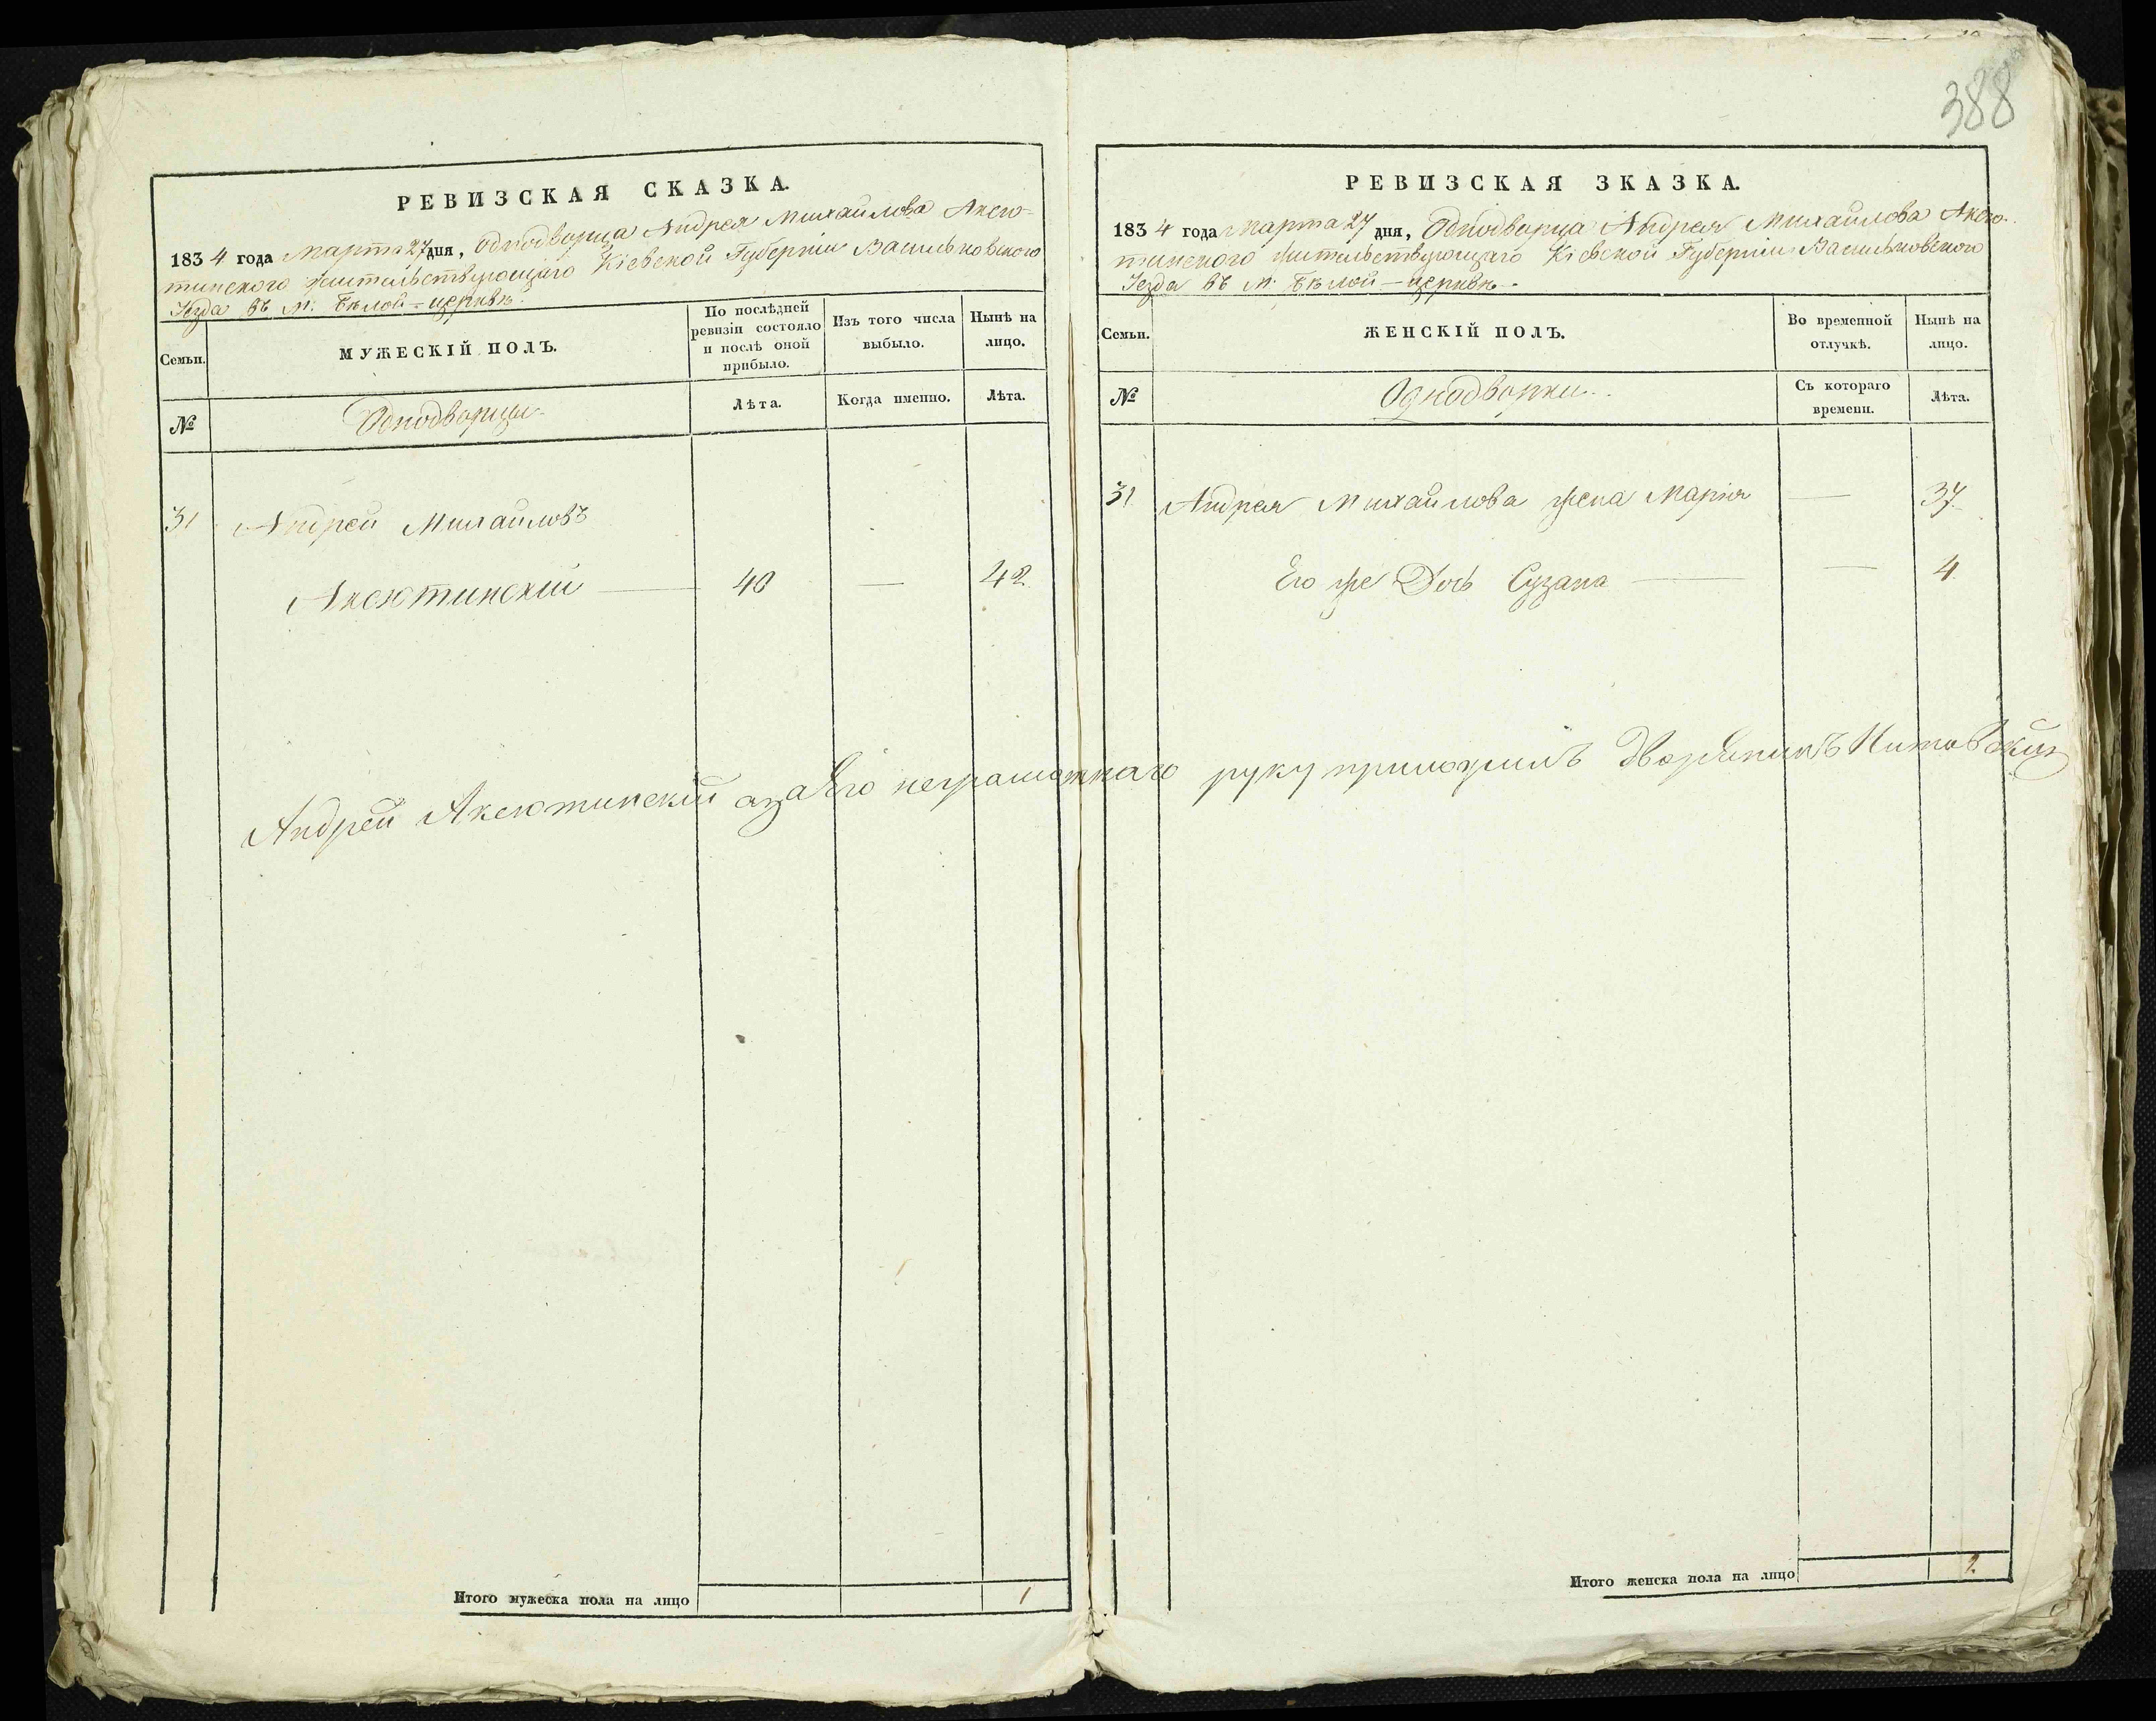 388
РЕВИЗСКАЯ СКАЗКА.
1834 года Марта 27 дня, Однодворца Андрея Михайлова Аксю-
тинского жительствующаго Кіевской Губерніи Васильковского
Уезда въ М: Бѣлой-церквѣ.
Семьи.
МУЖЕСКІЙ ПОЛЪ.
По послѣдней ревизіи состояло и послѣ оной прибыло.
Изъ того числа выбыло.
Нынѣ на лицо.
№
Однодворцы
Лѣта.
Когда именно.
Лѣта.
31 Андрей Михайловъ
Аксютинскій — 40 — 42
Андрей Аксютинскій а за Его неграмотнаго руку приложилъ Дворянинъ
Итого мужеска пола на лицо 1
РЕВИЗСКАЯ ЗКАЗКА.
1834 года Марта 27 дня, Однодворца Андрея Михайлова Аксю-
тинского жительствующаго Кіевской Губерніи Васильковского
Уезда въ М: Бѣлой-церквѣ.
Семьи.
ЖЕНСКІЙ ПОЛЪ.
Во временной отлучкѣ.
Нынѣ на лицо.
№
Однодворки.
Съ котораго времени.
Лѣта.
31 Андрея Михайлова жена Марія — 37
Его же Дочь Сузана — — 4
Итого женска пола на лицо 2